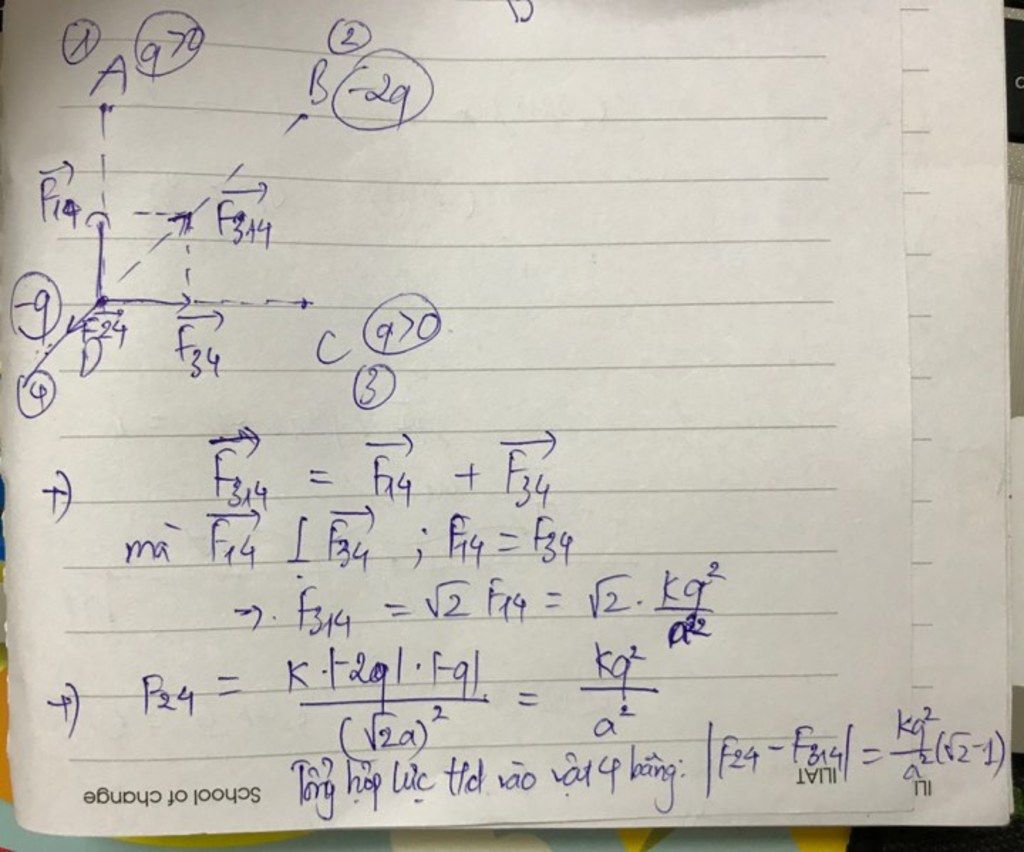 ① A q>0
② B -2q
F₁₄ F₃₁₄
-q F₂₄ F₃₄ C q>0
D
④ ③
+) F₃₁₄ = F₁₄ + F₃₄
mà F₁₄ ⊥ F₃₄ ; F₁₄ = F₃₄
→. F₃₁₄ = √2 F₁₄ = √2 . kq²/a²
+) F₂₄ = k.|-2q|.|-q|/(√2a)² = kq²/a²
Tổng hợp lực t/d vào vật 4 bằng: |F₂₄ - F₃₁₄| = kq²/a²(√2-1)
School of change